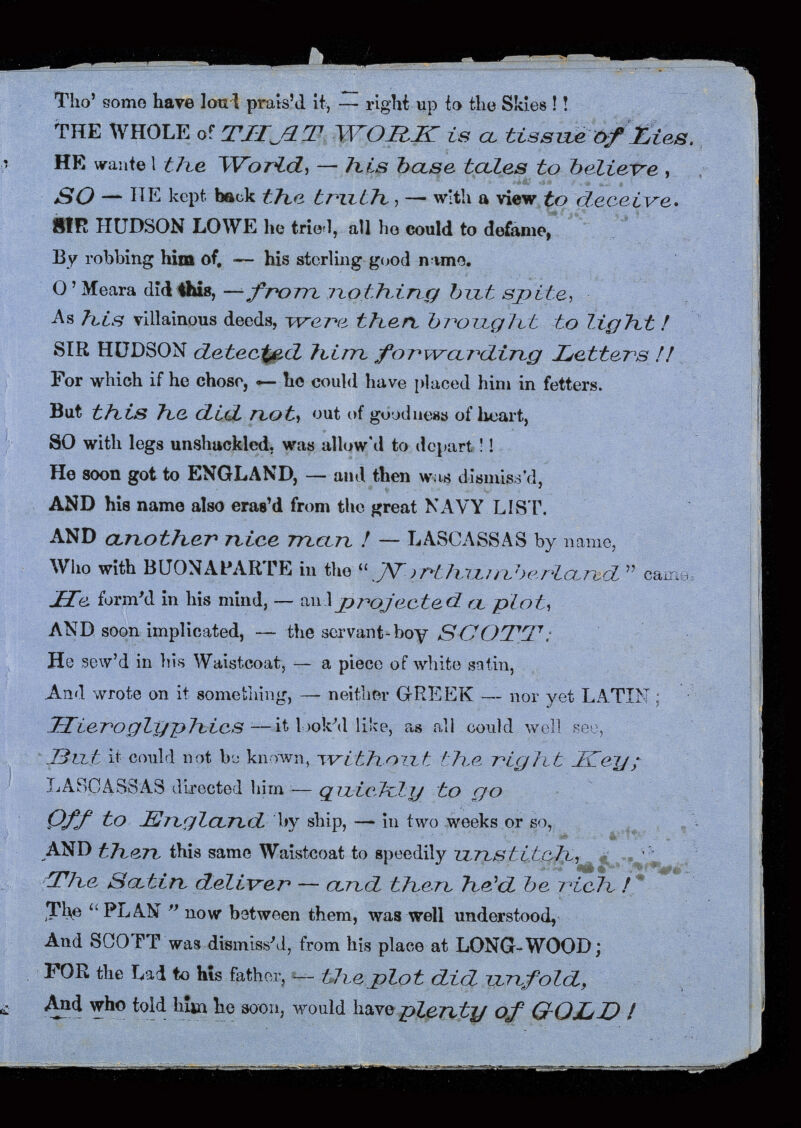 Tho' some have loud prais'd it, — right up to the Skies ! !
THE WHOLE of THAT WORK is a tissue of Lies.
HE wanted the World, — his base tales to believe ,
SO — HE kept back the truth , — with a view to deceive.
SIR HUDSON LOWE he tried, all he could to defame,
By robbing him of, — his sterling good name.
O ' Meara did this, — from nothing but spite,
As his villainous deeds, were then brought to light !
SIR HUDSON detected him forwarding Letters ! !
For which if he chose, — he could have placed him in fetters.
But this he did not, out of goodness of heart,
SO with legs unshackled, was allow'd to depart ! !
He soon got to ENGLAND, — and then was dismiss'd,
AND his name also eras'd from the great NAVY LIST.
AND another nice man ! — LASCASSAS by name,
Who with BUONAPARTE in the “ Northumberland ” came.
He form'd in his mind, — and projected a plot,
AND soon implicated, — the servant-boy SCOTT:
He sew'd in his Waistcoat, — a piece of white satin,
And wrote on it something, — neither GREEK — nor yet LATIN ;
Hieroglyphics — it look'd like, as all could well see,
But it could not be known, without the right Key;
LASCASSAS directed him — quickly to go
Off to England by ship, — in two weeks or so,
AND then this same Waistcoat to speedily unstitch,
The Satin deliver — and then he'd be rich !
The “ PLAN ” now between them, was well understood,
And SCOTT was dismiss'd, from his place at LONG-WOOD ;
FOR the Lad to his father, — the plot did unfold,
And who told him he soon, would have plenty of GOLD !